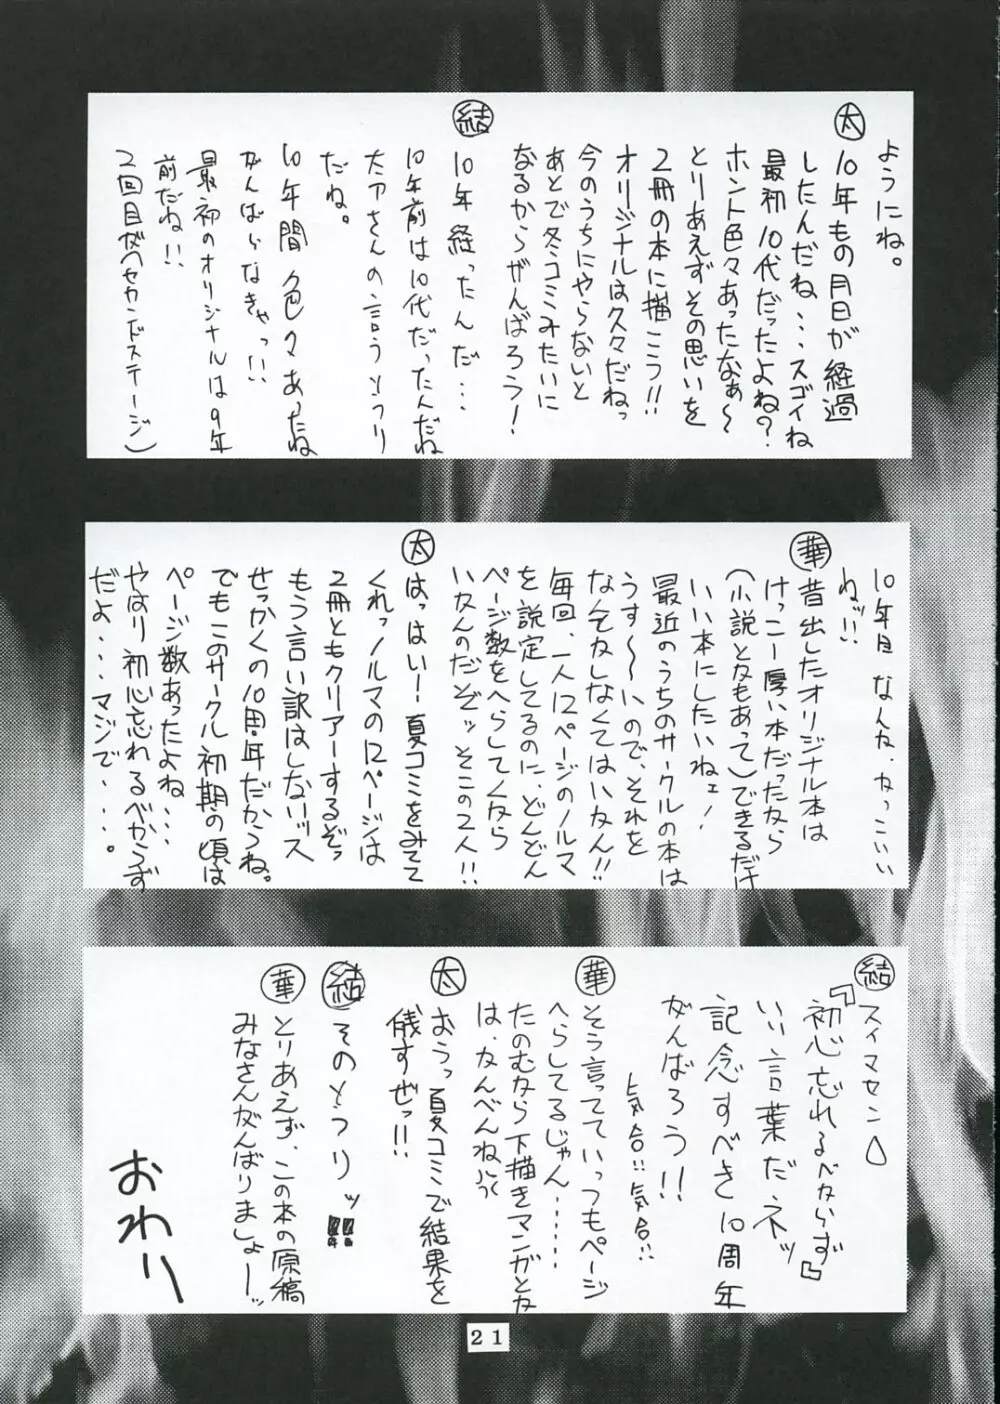 ようにね。
太
10年もの月日が経過
したんだね...スゴイね
最初10代だったよね?
ホント色々あったなぁ〜
とりあえずその思いを
2冊の本に描こう!!
オリジナルは久々だねっ
今のうちにやらないと
あとで冬コミみたいに
なるからがんばろう!
結
10年経ったんだ...
10年前は10代だったんだね
太アさんの言うとうり
だね。
10年間色々あったね
がんばらなきゃっ!!
最初のオリジナルは9年
前だね!!
2回目が(セカンドステージ)
10年目なんな、なっこいい
ねッ!!
華
昔出したオリジナル本は
けっこー厚い本だったなら
(小説となもあって)できるだけ
いい本にしたいねェ!
最近のうちのサークルの本は
うす〜〜いので、それを
なんとなしなくてはいなん!!
毎回、一人12ページのノルマ
を設定してるのに、どんどん
ページ数をへらしてくなら
いなんのだぞッそこの2人!!
太
はっはい!夏コミをみてて
くれっノルマの12ページは
2冊ともクリアーするぞっ
もう言い訳はしないッス
せっかくの10周年だからね。
でもこのサークル初期の頃は
ページ数あったよね...
やはり初心忘れるべからず
だよ...マジで....。
結
スイマセン
『初心忘れるべならず』
いい言葉だネッ
記念すべき10周年
がんばろう!!
気合!!気合!!
華
そう言っていっつもページ
へらしてるじゃん......
たのむなら下描きマンガとな
は、なんべんねぶく
太
おうっ夏コミで結果を
残すぜっ!!
結
そのとうりッ!!
華
とりあえず、この本の原稿
みなさんがんばりましょーッ
おわり
21